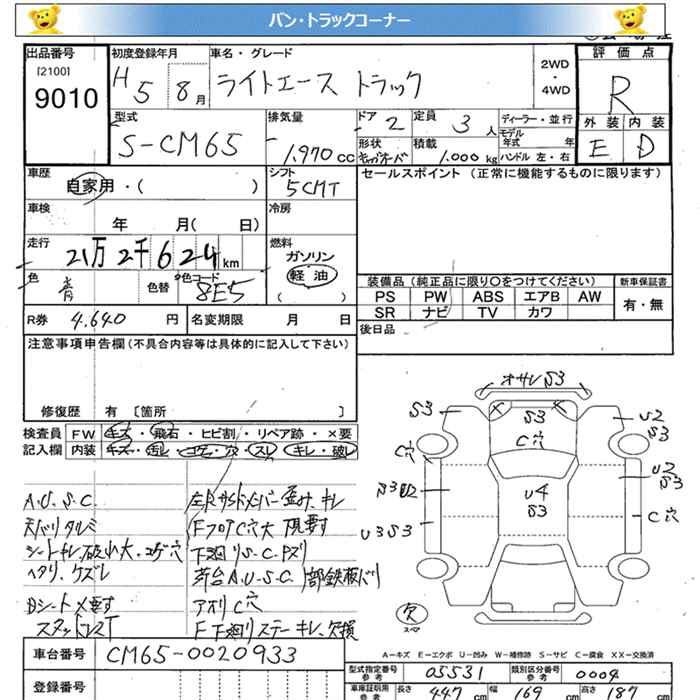 バン・トラックコーナー
出品番号 初度登録年月 車名・グレード 評価点
[2100]
9010 H5 8月 ライトエース トラック 2WD・4WD R
型式 排気量 ドア 定員 ディーラー・並行 外装 内装
S-CM65 1,970cc 2 3人 モデル年式 年 E D
形状 積載 ハンドル 左・右
キャブオーバ 1,000kg
車歴 シフト セールスポイント(正常に機能するものに限ります)
自家用・( ) 5CMT
車検 冷房
年 月( 日)
走行 燃料
21万2千624km ガソリン
軽油
( )
色 色替 色コード
青 8E5
装備品(純正品に限り○をつけてください) 新車保証書
PS PW ABS エアB AW 有・無
SR ナビ TV カワ
R券 4,640円 名変期限 月 日 後日品
注意事項申告欄(不具合内容等は具体的に記入して下さい)
修復歴 有〔箇所 〕
検査員 FW キズ・飛石・ヒビ割・リペア跡・×要
記入欄 内装 キズ・汚レ・コゲ・穴・スレ・キレ・破レ
A.U.S.C.
天バリタルミ
シートキレ、破レ大、コゲ穴
ヘタリ、ケズレ
Dシート×要す
スタッドレスT
左Rサイドメンバー歪ミ、キレ
FフロアC穴大 要す
下廻りS.C.
荷台A.U.S.C.
アオリC穴
F下廻りステーキレ、欠損
S3 S3 U2
C穴 S3
C穴
S3U2 U4 U2
S3 S3
U3S3 C穴
欠
スペア
A－キズ E－エクボ U－凹み W－補修跡 S－サビ C－腐食 XX－交換済
車台番号 CM65-0020933
登録番号
型式指定番号 参考 05531 類別区分番号 参考 0004
車庫証明用 参考 長さ 447cm 幅 169cm 高さ 187cm